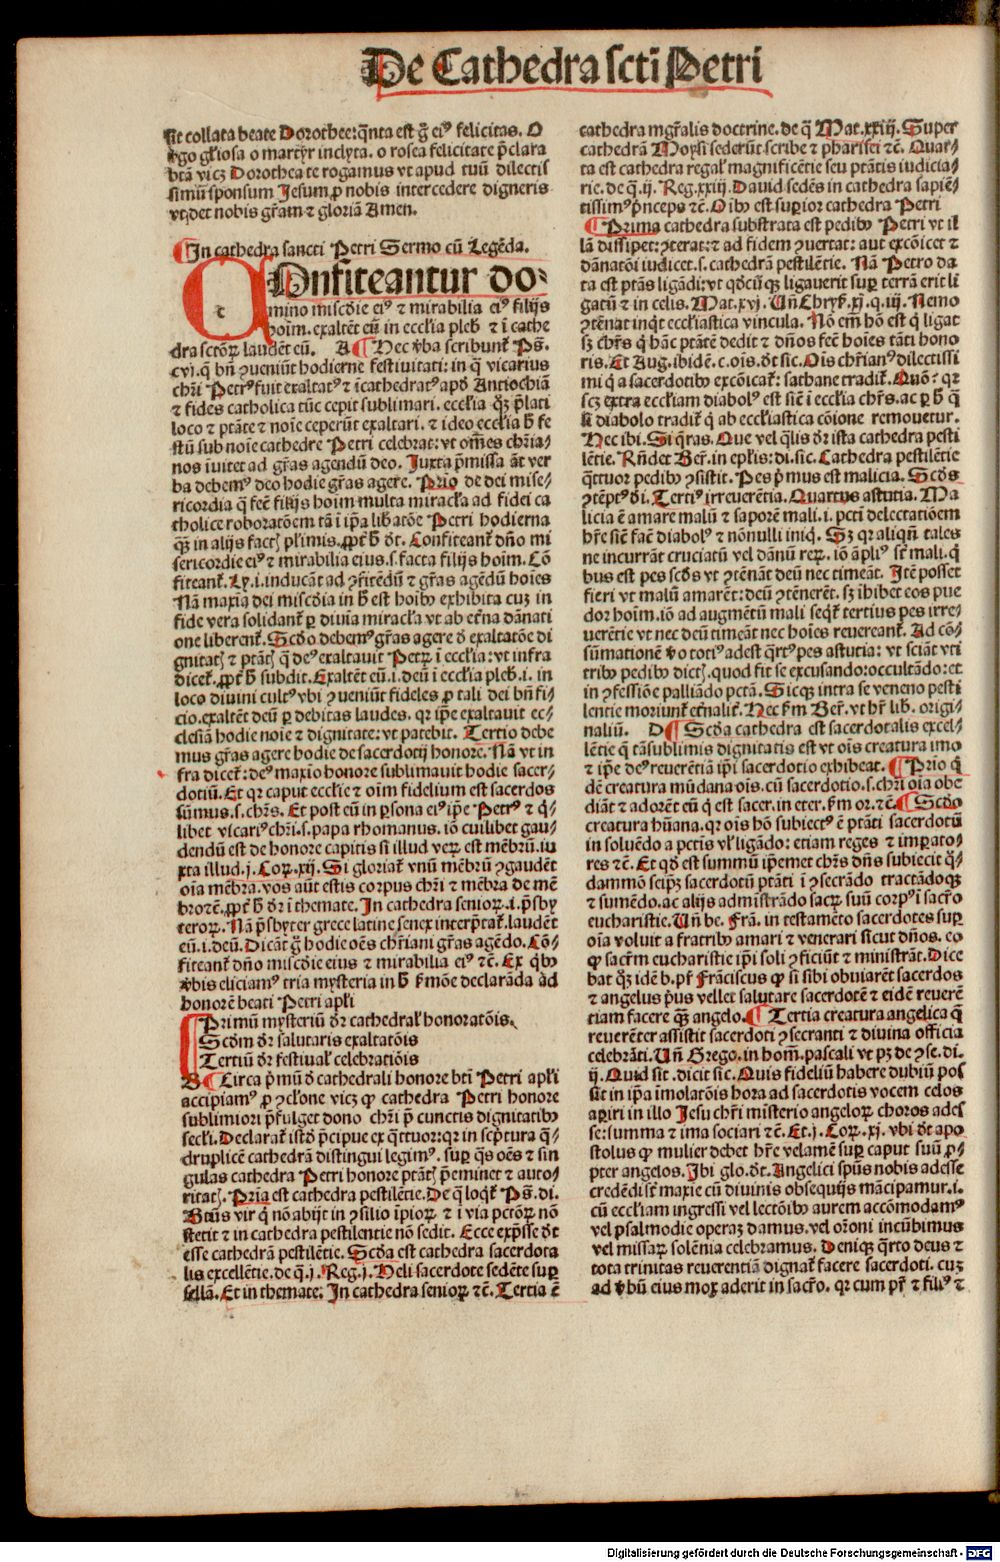 De Cathedra sctī Petri
sit collata beate Dorothee: q̄nta est g̊ eiꝰ felicitas. O
ꝟgo gl̓iosa o martyr inclyta. o rosea felicitate p̄clara
btā vicꝫ Dorothea te rogamus vt apud tuū dilectis
simū sponsum Jesum ꝓ nobis intercedere digneris
vt det nobis gr̄am ⁊ gloriā Amen.
¶ In cathedra sancti Petri Sermo cū Legēda.
COnfiteantur do⸗
mino miscd̓ie eiꝰ ⁊ mirabilia eiꝰ filijs
hoīm. exaltēt eū in eccl̓ia pleb̓ ⁊ ī cathe
dra sctōꝝ laudēt eū. A ¶ Hec ꝟba scribunt̓ Ps̄.
cvj. q̄ bn̄ ꝯueniūt hodierne festiuitati: in q̄ vicarius
chr̄i Petrꝰ fuit exaltatꝰ ⁊ īcathedratꝰ apd̓ Antiochiā
⁊ fides catholica tūc cepit sublimari. eccl̓ia qͦꝫ p̄lati
loco ⁊ ptāte ⁊ noīe ceperūt exaltari. ⁊ ideo eccl̓ia h̓ fe
stū sub noīe cathedre Petri celebrat: vt om̄es chr̄ia⸗
nos īuitet ad gr̄as agendū deo. Juxta p̄missa āt ver
ba debemꝰ deo hodie gr̄as agere. Prīo de dei mise⸗
ricordia q̄ fec̄ filijs hoīm multa miracl̓a ad fidei ca
tholice roboratōem tā ī ip̄a lib̓atōe Petri hodierna
qꝫ in alijs fact̓ pl̓imis. ꝓpt̓ h̓ dt̓. Confiteant̓ dn̄o mi
sericordie eiꝰ ⁊ mirabilia eius. s. facta filijs hoīm. Cō
fiteant̓. Ly. i. inducāt ad ꝯfitēdū ⁊ gr̄as agēdū hoīes
Nā maxīa dei miscd̓ia in h̓ est hoīꝰ exhibita cuꝫ in
fide vera solidant̓ ꝑ diuīa miracl̓a vt ab et̓na dānati
one liberent̓. Scd̓o debemꝰ gr̄as agere d̓ exaltatōe di
gnitat̓ ⁊ ptāt̓ q̄ deꝰ exaltauit Petꝝ ī eccl̓ia: vt infra
dicet̓. ꝓpt̓ h̓ subdit. Exaltēt eū. i. deū ī eccl̓ia pleb̓. i. in
loco diuini cultꝰ vbi ꝯueniūt fideles ꝓ tali dei bn̄fi⸗
cio. exaltēt deū ꝑ debitas laudes. qr ip̄e exaltauit ec⸗
clesiā hodie noīe ⁊ dignitate: vt patebit. Tertio debe
mus gr̄as agere hodie de sacerdotij honore. Nā vt in
fra dicet̓: deꝰ maxīo honore sublimauit hodie sacer⸗
dotiū. Et qr caput eccl̓ie ⁊ oīm fidelium est sacerdos
sūmus. s. chr̄s. Et post eū in ꝑsona eiꝰ ip̄e Petrꝰ ⁊ q̓⸗
libet vicariꝰ chr̄i. s. papa rhomanus. iō cuilibet gau⸗
dendū est de honore capitis si illud veꝝ est mēbrū. iu
xta illud. j. Coꝝ. xij. Si gloriat̓ vnū mēbrū ꝯgaudēt
oīa mēbra. vos aūt estis corpus chr̄i ⁊ mēbra de mē
bro ⁊c̄. ꝓpt̓ h̓ dr̄ ī themate. In cathedra senioꝝ. i. p̄sby
teroꝝ. Nā p̄sbyter grece latine senex interp̄tat̓. laudēt
eū. i. deū. Dicāt g̊ hodie oēs chr̄iani gr̄as agēdo. Cō⸗
fiteant̓ dn̄o miscd̓ie eius ⁊ mirabilia eiꝰ ⁊c̄. Ex q̓bꝰ
ꝟbis eliciamꝰ tria mysteria in h̓ ẜmōe declarāda ad
honorē beati Petri apl̓i
¶ Primū mysteriū dr̄ cathedral̓ honoratōis.
Scd̓m dr̄ salutaris exaltatōis
Tertiū dr̄ festiual̓ celebratiōis
B ¶ Circa p̄mū d̓ cathedrali honore bt̄i Petri apl̓i
accipiamꝰ ꝓ ꝯcl̓one vicꝫ ꝙ cathedra Petri honore
sublimiori p̄fulget dono chr̄i p̄ cunctis dignitatibꝰ
secl̓i. Declarat̓ istd̓ p̄cipue ex q̄ttuor: qr in scp̄tura q̄⸗
druplicē cathedrā distingui legimꝰ. suꝑ q̄s oēs ⁊ sin
gulas cathedra Petri honore ptāt̓ p̄eminet ⁊ aucto⸗
ritat̓. Prīa est cathedra pestilētie. De q̄ loqt̓ Ps̄. di.
Btūs vir q̄ nō abijt in ꝯsilio īpioꝝ ⁊ ī via pctōꝝ nō
stetit ⁊ in cathedra pestilentie nō sedit. Ecce exp̄sse dt̓
esse cathedrā pestilētie. Scd̓a est cathedra sacerdota
lis excellētie. de q̄. j. Reg. j. Heli sacerdote sedēte suꝑ
sellā. Et in themate: In cathedra senioꝝ ⁊c̄. Tertia ē
cathedra mgr̄alis doctrine. de q̄ Mat. xxiij. Super
cathedrā Moysi sederūt scribe ⁊ pharisei ⁊c̄. Quar⸗
ta est cathedra regal̓ magnificētie seu ptātis iudicia⸗
rie. de q̄. ij. Reg. xxiij. Dauid sedēs in cathedra sapiē⸗
tissimꝰ p̄nceps ⁊c̄. Oībꝰ est suꝑior cathedra Petri
¶ Prima cathedra substrata est pedibꝰ Petri vt il
lā dissipet: ꝯterat: ⁊ ad fidem ꝯuertat: aut excōicet ⁊
dānatōi iudicet. s. cathedrā pestilētie. Nā Petro da
ta est ptās ligādi: vt qd̓cūqꝫ ligauerit suꝑ terrā erit li
gatū ⁊ in celis. Mat. xvj. Vn̄ Chryẜ. xj. q. iij. Nemo
ꝯtēnat inq̓t eccl̓iastica vincula. Nō em̄ hō est q̄ ligat
sꝫ chr̄s q̄ hāc ptātē dedit ⁊ dn̄os fec̄ hoīes tāti hono
ris. Et Aug. ibidē. c. oīs. dt̓ sic. Oīs chr̄ianꝰ dilectissi
mi q̄ a sacerdotibꝰ excōicat̓: sathane tradit̓. Quō? qr
scꝫ extra eccl̓iam diabolꝰ est sic̄ ī eccl̓ia chr̄s. ac ꝑ h̓ q̄
si diabolo tradit̓ q̄ ab eccl̓iastica cōione remouetur.
Hec ibi. Si q̄ras. Que vel q̄lis dr̄ ista cathedra pesti
lētie. Rn̄det Ber̄. in epl̓is: di. sic. Cathedra pestilētie
q̄ttuor pedibꝰ ꝯsistit. Pes p̄mus est malicia. Scd̓s
ꝯtēptꝰ dī. Tertiꝰ irreuerētia. Quartus astutia. Ma
licia ē amare malū ⁊ saporē mali. i. pctī delectatiōem
hr̄e sic̄ faē diabolꝰ ⁊ nōnulli iniq̓. Sꝫ qr aliqn̄ tales
ne incurrāt cruciatū vel dānū reꝝ. iō āpliꝰ st̄ mali. q̓
bus est pes scd̓s vt ꝯtēnāt deū nec timeāt. Itē posset
fieri vt malū amarēt: deū ꝯtēnerēt. sꝫ īhibet eos pue
dor hoīm. iō ad augmētū mali seqt̓ tertius pes irre⸗
uerētie vt nec deū timeāt nec hoīes reuereant̓. Ad cō⸗
sūmationē ꝟo totiꝰ adest q̄rtꝰ pes astutia: vt sciāt vti
tribꝰ pedibꝰ dict̓. quod fit se excusando: occultādo: et
in ꝯfessiōe palliādo pctā. Sicqꝫ intra se veneno pesti
lentie moriunt̓ et̓nalit̓. Hec ẜm Ber̄. vt hr̄ lib̓. origi⸗
naliū. D ¶ Scd̓a cathedra est sacerdotalis excel⸗
lētie q̄ tā sublimis dignitatis est vt oīs creatura imo
⁊ ip̄e deꝰ reuerētiā ip̄i sacerdotio exhibeat. ¶ Prīo q̄
dē creatura mūdana oīs. cū sacerdotio. s. chr̄i oīa obe
diāt ⁊ adorēt eū q̄ est sacer. in eter. ẜm or. ⁊c̄. ¶ Scd̓o
creatura hūana. qr oīs hō subiectꝰ ē ptāti sacerdotū
in soluēdo a pctīs vl̓ ligādo: etiam reges ⁊ imꝑato⸗
res ⁊c̄. Et qd̓ est summū ip̄emet chr̄s dn̄s subiecit q̄⸗
dammō seip̄ꝫ sacerdotū ptāti ī ꝯsecrādo tractādoqꝫ
⁊ sumēdo. ac alijs admīstrādo sacꝝ suū corpꝰ ī sacr̄o
eucharistie. Vn̄ be. Frā. in testamēto sacerdotes suꝑ
oīa voluit a fratribꝰ amari ⁊ venerari sicut dn̄os. eo
ꝙ sacr̄m eucharistie ip̄i soli ꝯficiūt ⁊ ministrāt. Dice
bat qͦꝫ idē b. pr̄ Frāciscus ꝙ si sibi obuiarēt sacerdos
⁊ angelus p̄us vellet salutare sacerdotē ⁊ eidē reuerē
tiam facere qꝫ angelo. ¶ Tertia creatura angelica q̄
reuerēter assistit sacerdoti ꝯsecranti ⁊ diuina officia
celebrāti. Vn̄ Grego. in hom̄. pascali vt pꝫ de ꝯse. di.
ij. Quid sit. dicit sic. Quis fideliū habere dubiū pos
sit in ip̄a īmolatōis hora ad sacerdotis vocem celos
aꝑiri in illo Jesu chr̄i misterio angeloꝝ choros ades
se: summa ⁊ ima sociari ⁊c̄. Et. j. Coꝝ. xj. vbi dt̓ apo
stolus ꝙ mulier debet hr̄e velamē suꝑ caput suū ꝓ⸗
pter angelos. Ibi glo. dt̓. Angelici sp̄us nobis adesse
credēdi st̄ maxīe cū diuinis obsequijs mācipamur. i.
cū eccl̓iam ingressi vel lectōibꝰ aurem accōmodamꝰ
vel psalmodie operaꝫ damus. vel or̄oni incūbimus
vel missaꝝ solēnia celebramus. Deniqꝫ q̄rto deus ⁊
tota trinitas reuerentiā dignat̓ facere sacerdoti. cuꝫ
ad ꝟbū eius mox aderit in sacr̄o. qr cum pr̄ ⁊ filiꝰ ⁊
Digitalisierung gefördert durch die Deutsche Forschungsgemeinschaft - DFG